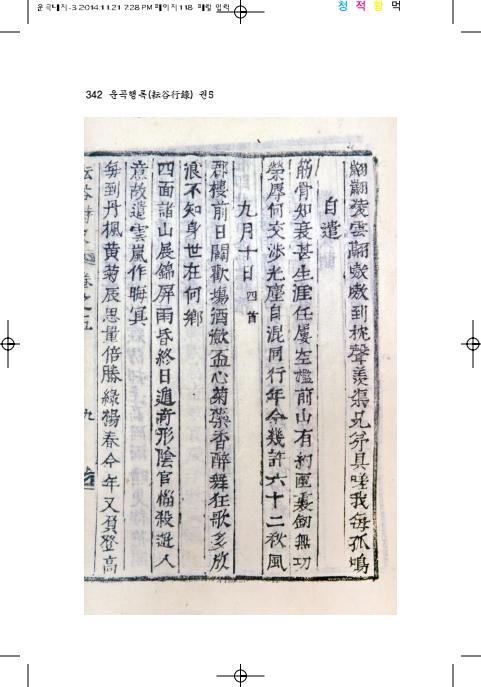 운곡내지-3 2014.11.21 7:28 PM 페이지118 매일 입력
청 적 황 먹
342 운곡행록(耘谷行錄) 권5
翩翩凌雲翮嗷嗷到枕聲羨渠兄弟具唾我每孤鳴
自遣
筋骨知衰甚生涯任屢空檻前山有約匣裏劒無功
榮辱何交涉光塵自混同行年今幾許六十二秋風
九月十日 四首
郡樓前日闢歡場酒瀲盃心菊蘂香醉舞狂歌多放
浪不知身世在何鄕
四面諸山展錦屛雨昏終日遁奇形陰官惱殺遊人
意故遣雲嵐作晦冥
每到丹楓黃菊辰思量倍勝綠楊春今年又負登高
耘谷詩 卷之五 九